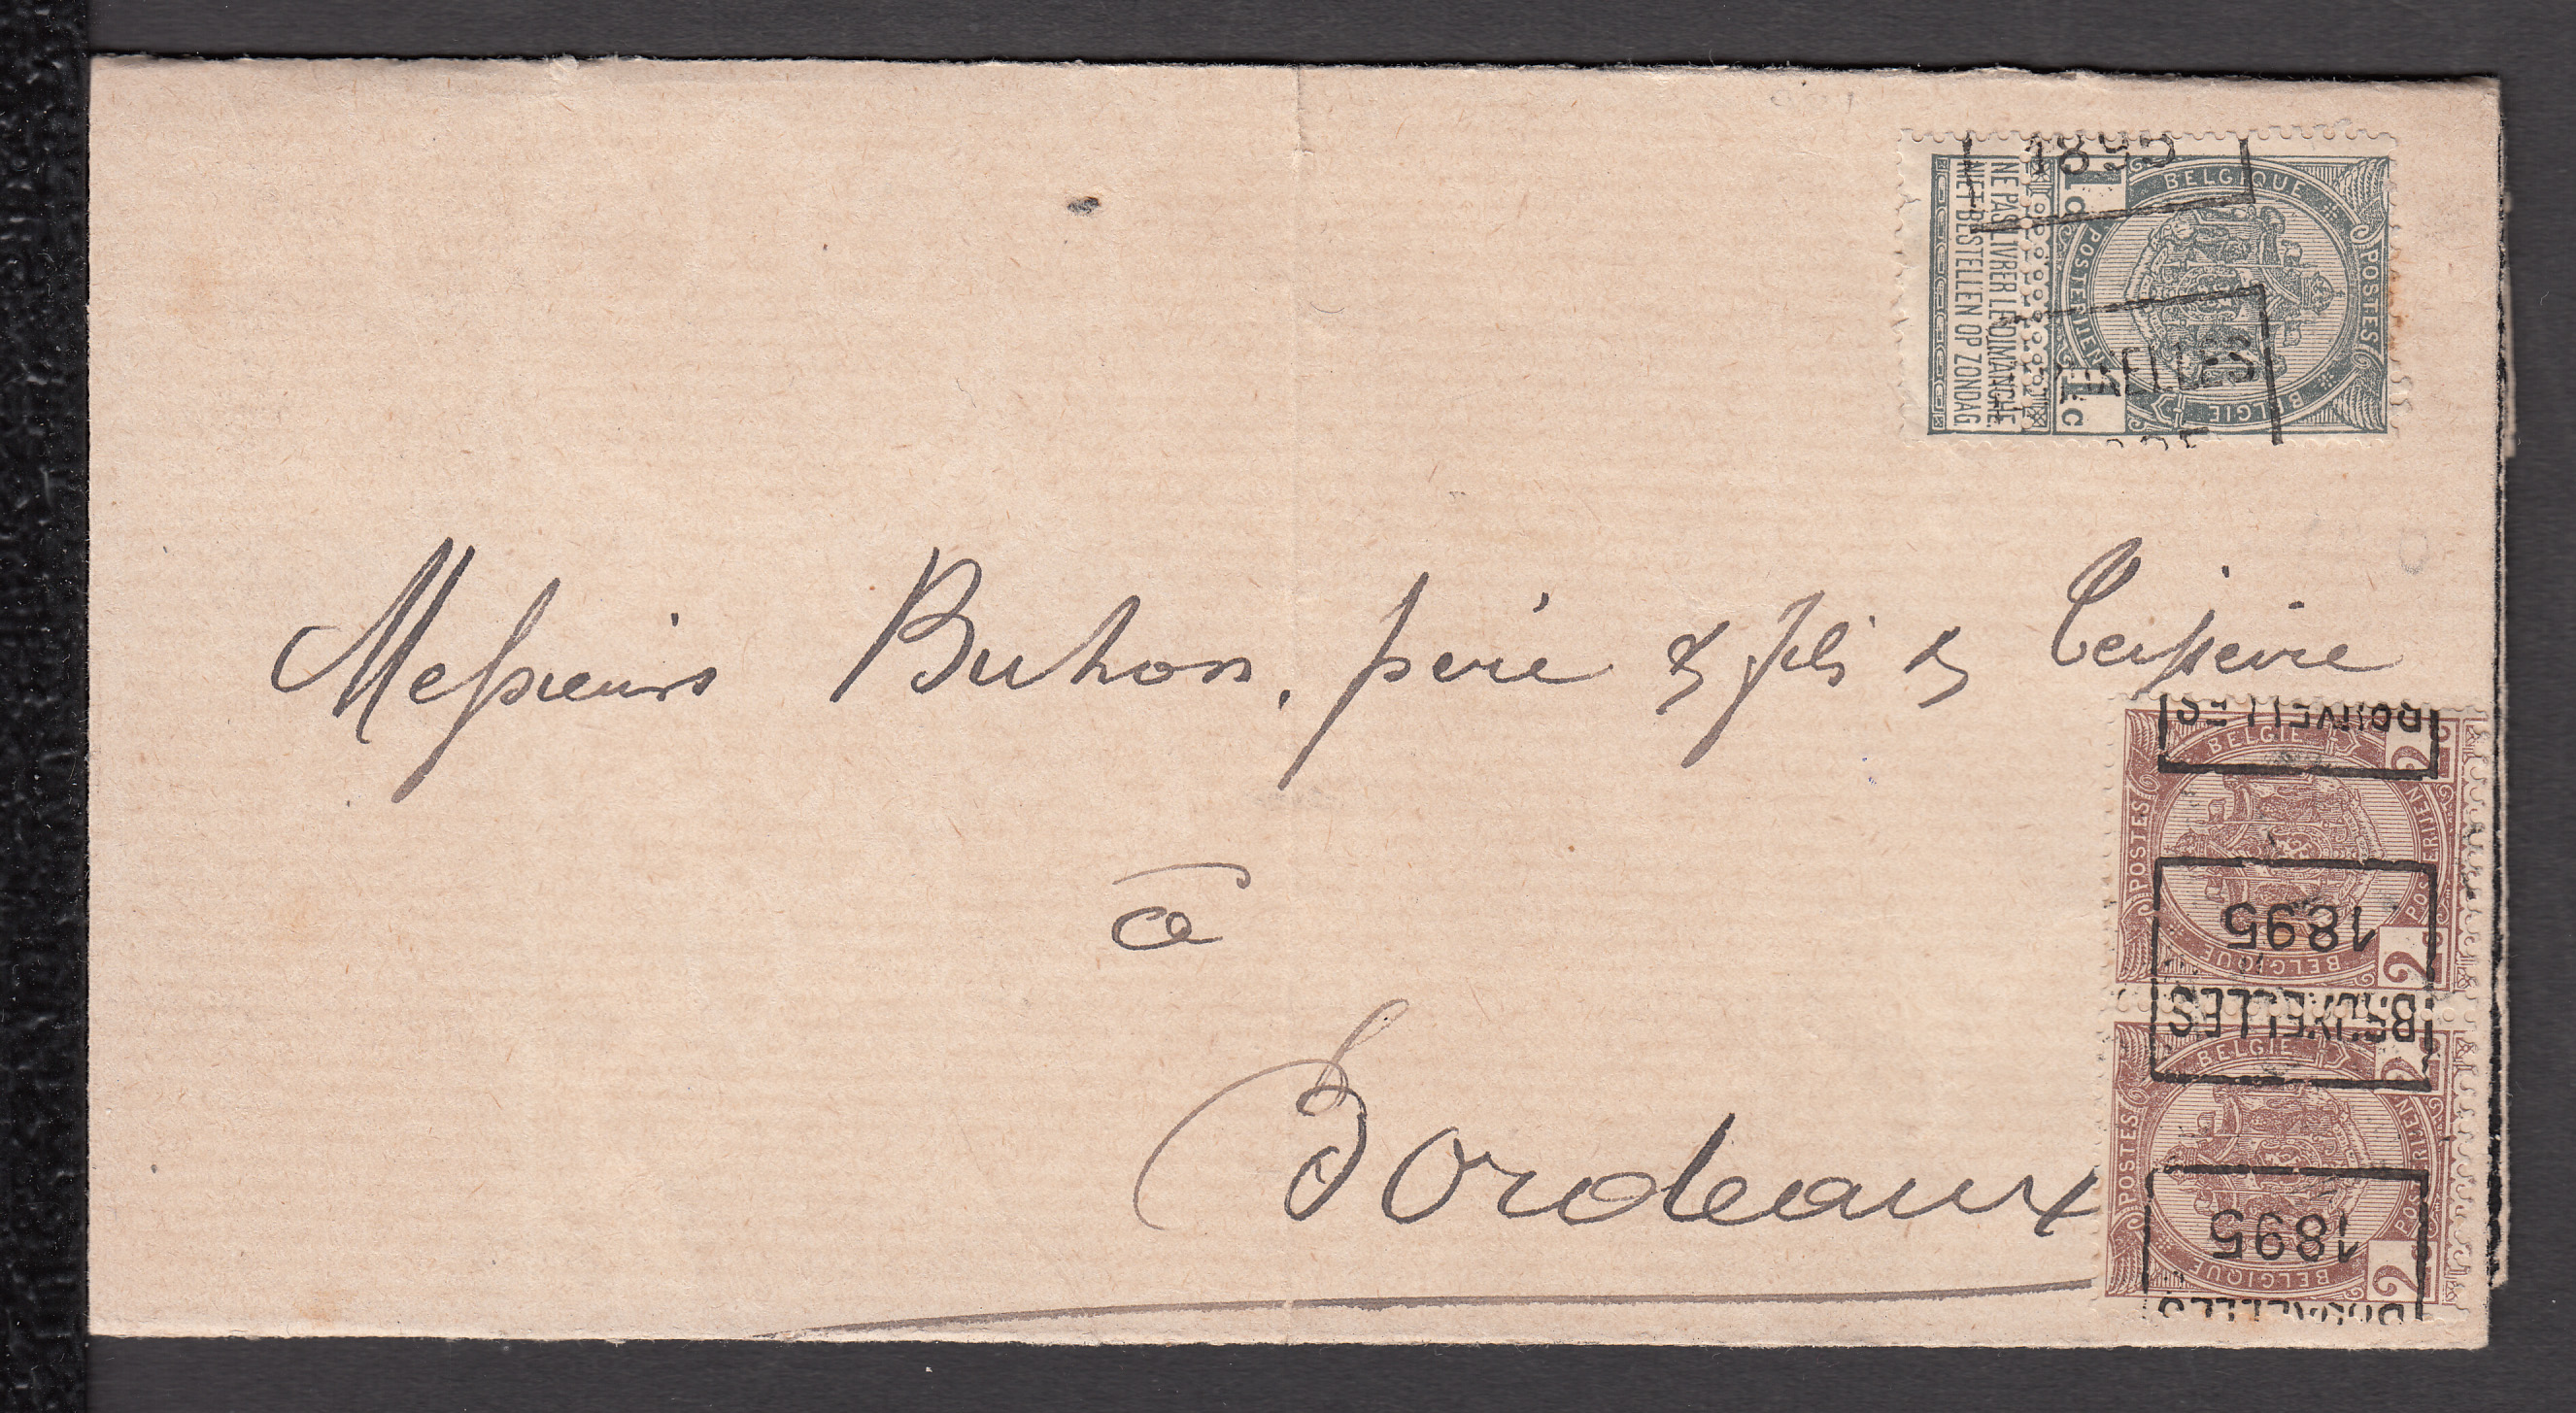 1895
BELGIQUE
POSTES
POSTERIJEN
BELGIE
1c
1c
NE PAS LIVRER LE DIMANCHE.
NIET BESTELLEN OP ZONDAG
Messieurs Buhan, père & fils &
à
Bordeaux
BRUXELLES
BELGIE
POSTES
POSTERIJEN
BELGIQUE
2c
1895
BRUXELLES
BELGIE
POSTES
POSTERIJEN
BELGIQUE
2c
1895
BRUXELLES